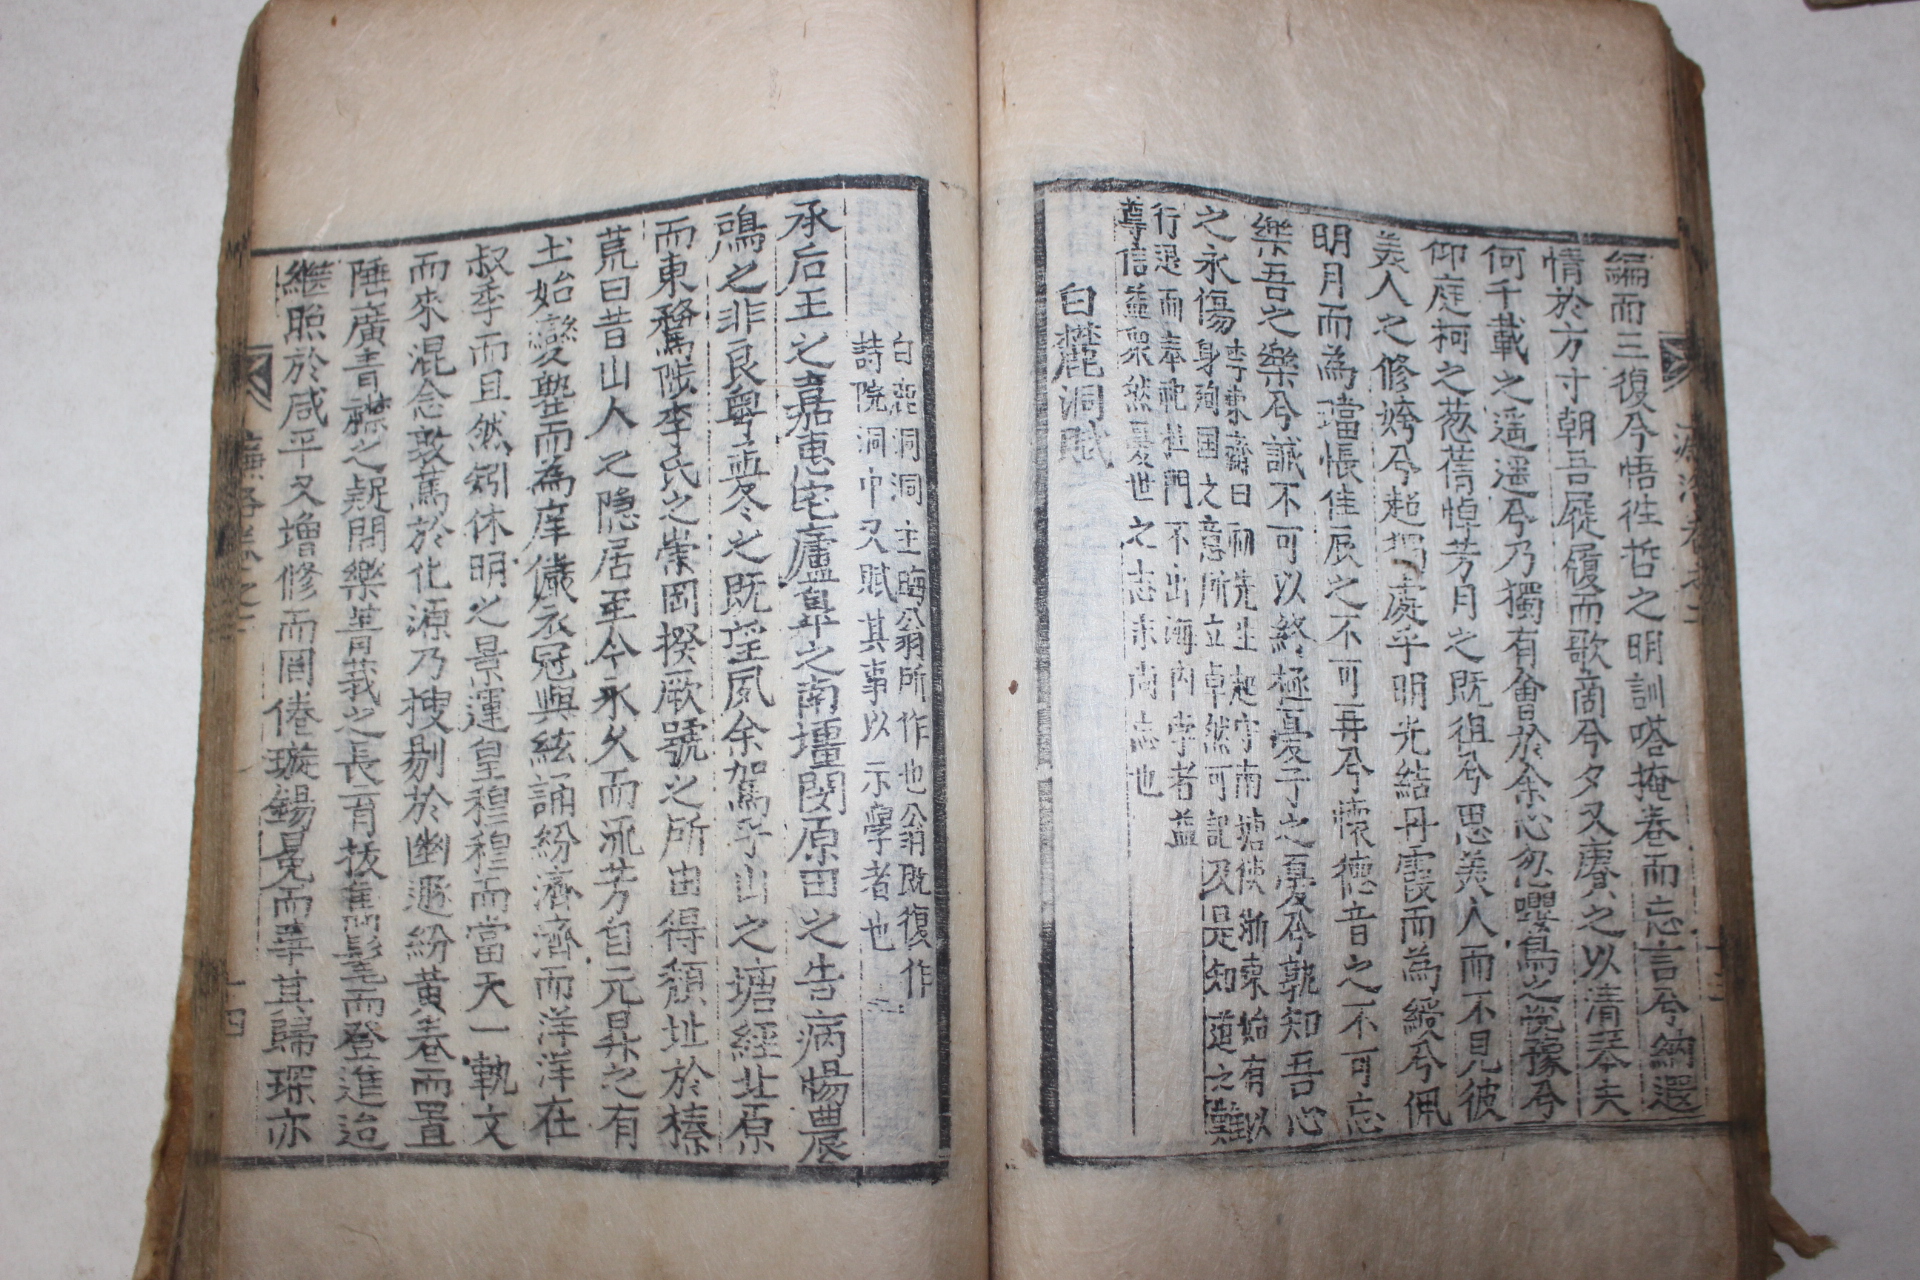 編而三復兮悟徃哲之明訓嗒掩卷而忘言兮納遐
情於方寸朝吾屣履而歌商兮夕又賡之以清琴夫
何千載之遥遥兮乃獨有會於余心忽嚶鳥之悅豫兮
仰庭柯之葱蒨悼芳月之既徂兮思美人而不見彼
美人之修姱兮超獨處乎明光結丹霞而為綬兮佩
明月而為璫悵佳辰之不可再兮懷德音之不可忘
樂吾之樂兮誠不可以終極憂子之憂兮孰知吾心
之永傷
李東齋曰初先生起守南塘使浙東始有以
身殉国之意所立卓然可記及是知道之難
行退而奉祀杜門不出海內学者益
尊信益聚然憂世之志未尚忘也
白麓洞賦
濂洛卷之二
白鹿洞洞主晦翁所作也翁既復作
詩院洞中又賦其事以示學者也
承后王之嘉惠宅廬阜之南壃閔原田之告病惕農
鳸之非良粤冬之既望夙余駕乎山之塘經北原
而東騖陟李氏之崇岡揆厥號之所由得頹址於榛
荒曰昔山人之隱居至今永久而流芳自元昇之有
土始變塾而為庠儼衣冠與絃誦紛濟濟而洋洋在
叔季而且然矧休明之景運皇穆穆而當天一軌文
而來混念敦篤於化源乃搜剔於幽遯紛黃卷而置
陲廣青襟之疑問樂菁莪之長育拔雋髦而登進迨
繼照於咸平又增修而罔倦璇錫冕而華其歸琛亦
濂洛卷之二
十四